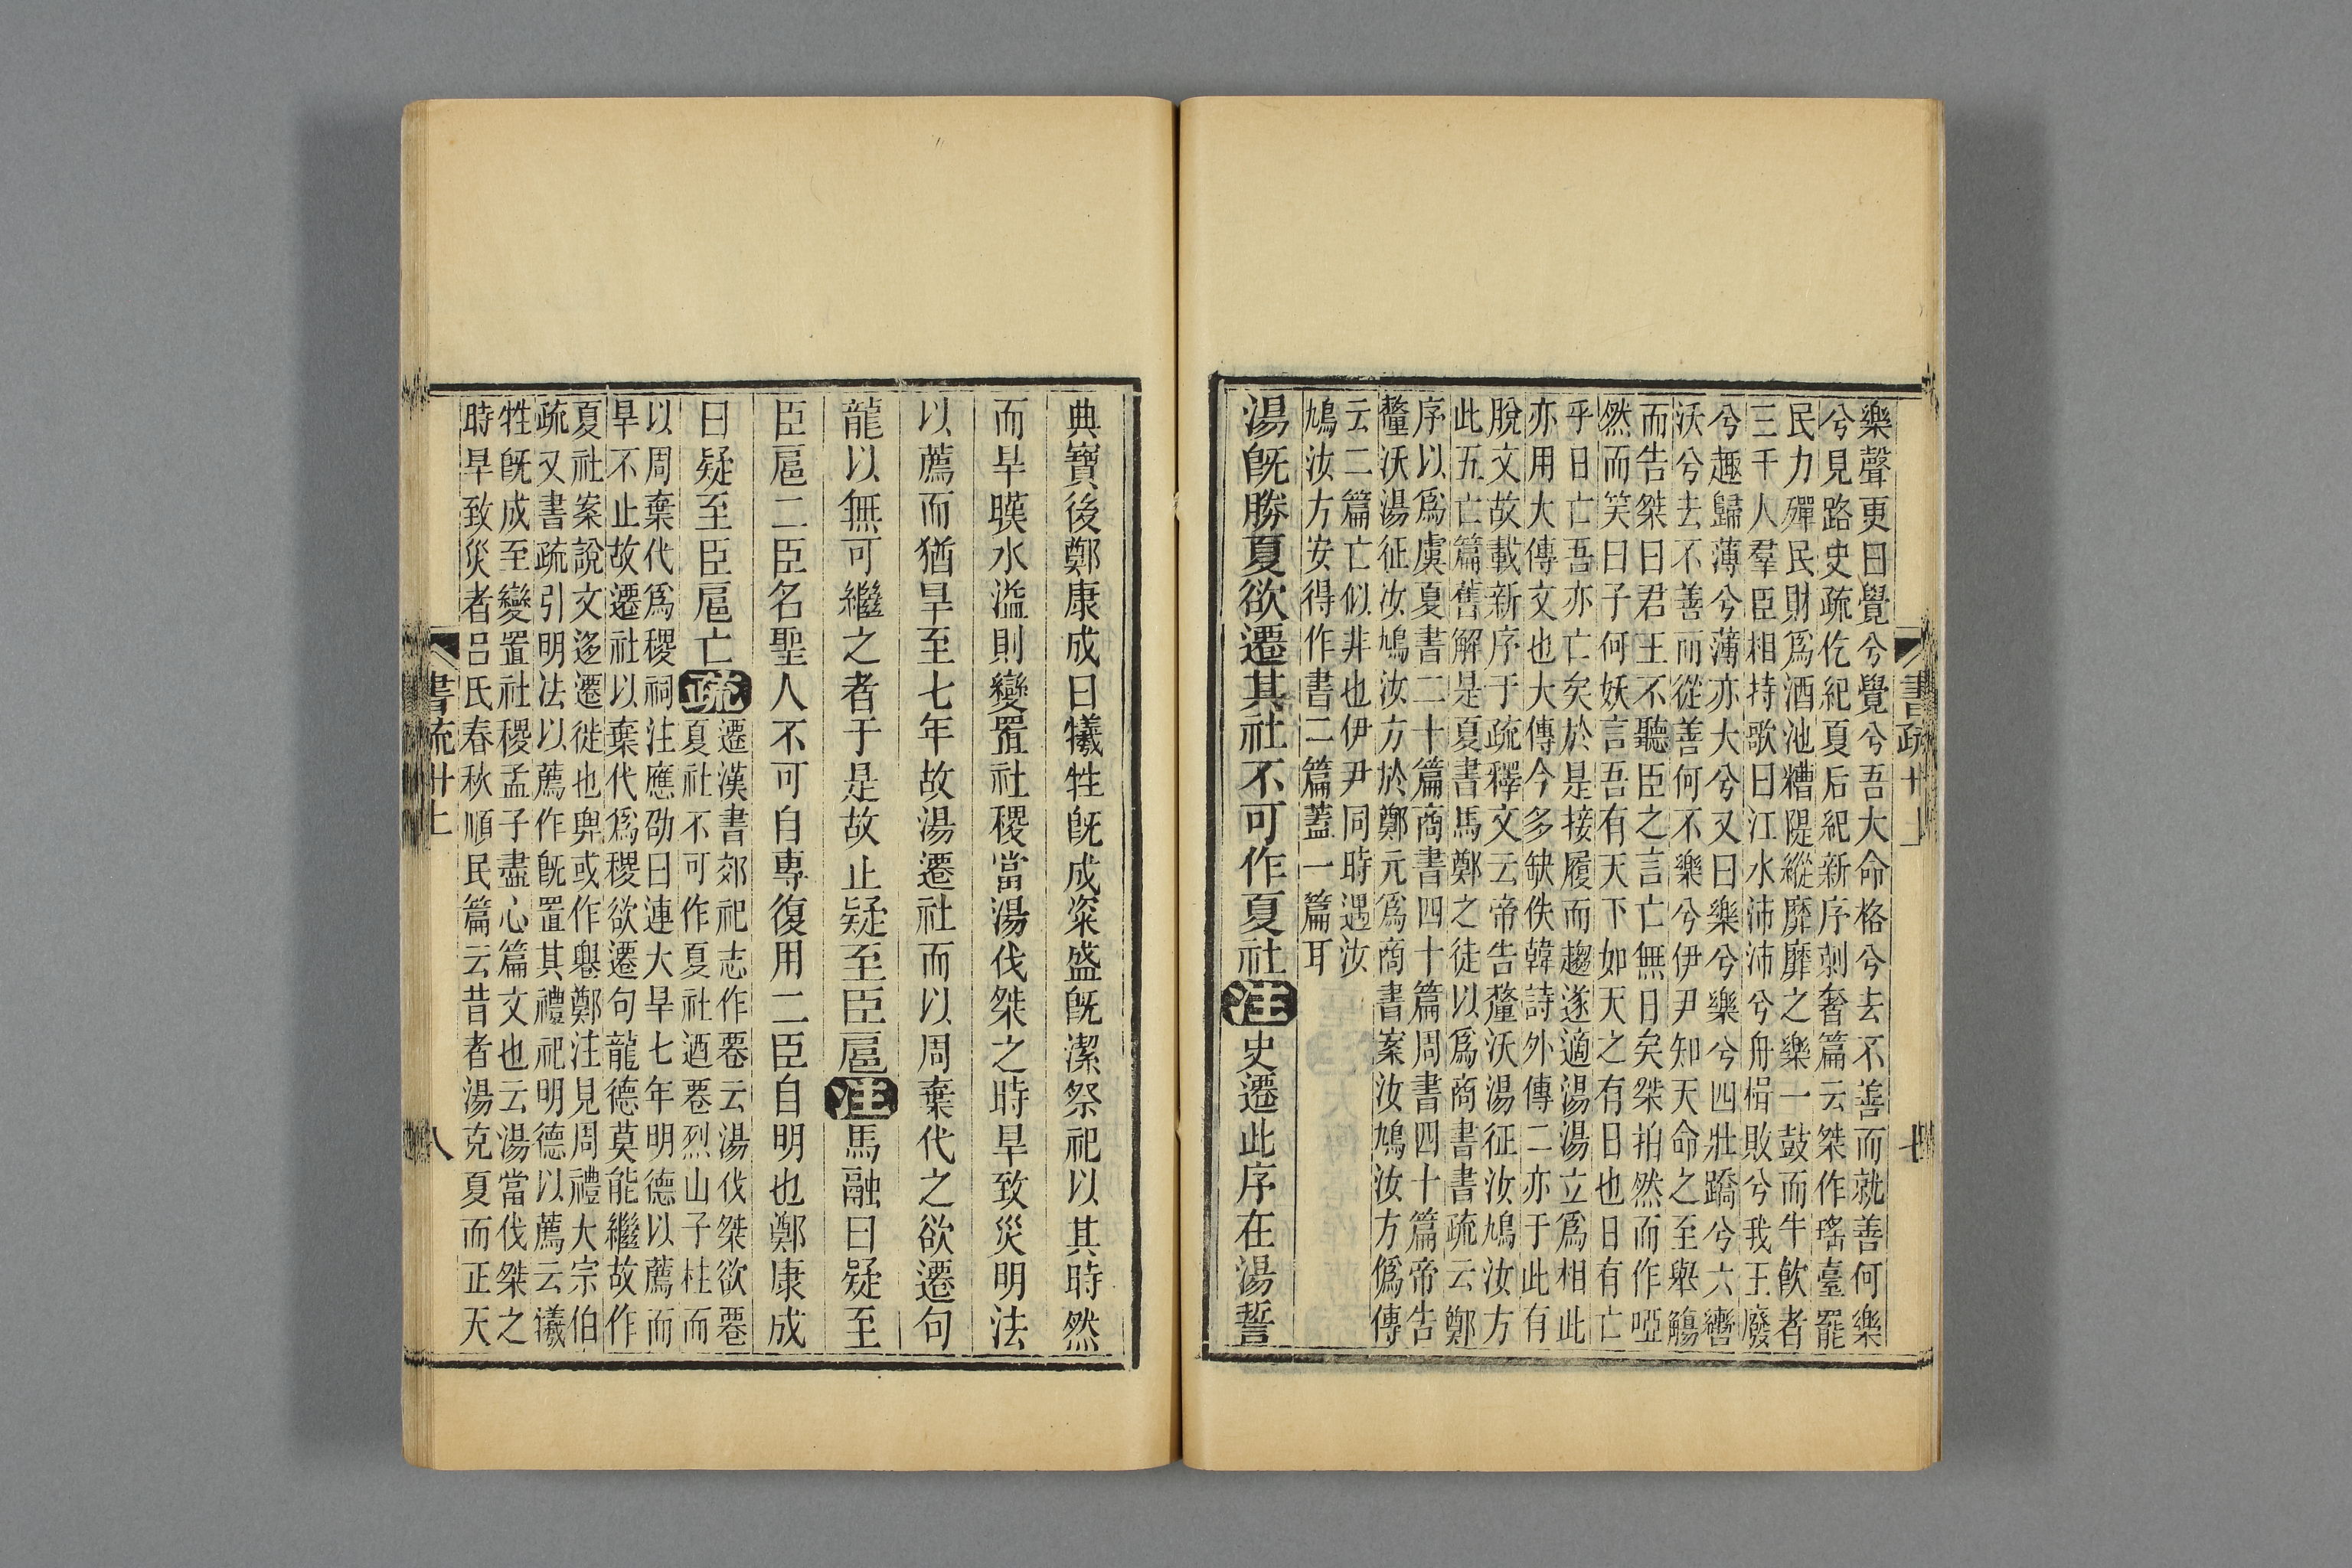 樂聲更曰覺兮覺兮吾大命格兮去不善而就善何樂
兮見路史疏仡紀夏后紀新序刺奢篇云桀作瑤臺罷
民力殫民財爲酒池糟隄縱靡靡之樂一鼓而牛飮者
三千人羣臣相持歌曰江水沛沛兮舟楫敗兮我王廢
兮趣歸薄兮薄亦大兮又曰樂兮樂兮四壯蹻兮六轡
沃兮去不善而從善何不樂兮伊尹知天命之至舉觴
而告桀曰君王不聽臣之言亡無日矣桀拍然而作啞
然而笑曰子何妖言吾有天下如天之有日也日有亡
乎日亡吾亦亡矣於是接履而趨遂適湯湯立爲相此
亦用大傳文也大傳今多缺佚韓詩外傳二亦于此有
脫文故載新序于疏釋文云帝告釐沃湯征汝鳩汝方
此五亡篇舊解是夏書馬鄭之徒以爲商書書疏云鄭
序以爲虞夏書二十篇商書四十篇周書四十篇帝告
釐沃湯征汝鳩汝方於鄭元爲商書案汝鳩汝方僞傳
云二篇亡似非也伊尹同時遇汝
鳩汝方安得作書二篇蓋一篇耳
湯旣勝夏欲遷其社不可作夏社注史遷此序在湯誓
書疏卅上
七
典寶後鄭康成曰犧牲旣成粢盛旣潔祭祀以其時然
而旱暵水溢則變置社稷當湯伐桀之時旱致災明法
以薦而猶旱至七年故湯遷社而以周棄代之欲遷句
龍以無可繼之者于是故止疑至臣扈注馬融曰疑至
臣扈二臣名聖人不可自專復用二臣自明也鄭康成
曰疑至臣扈亡疏
遷漢書郊祀志作䙴云湯伐桀欲䙴
夏社不可作夏社迺䙴烈山子柱而
以周棄代爲稷祠注應劭曰連大旱七年明德以薦而
旱不止故遷社以棄代爲稷欲遷句龍德莫能繼故作
夏社案說文迻遷徙也𢍱或作㩻鄭注見周禮大宗伯
疏又書疏引明法以薦作旣置其禮祀明德以薦云犧
牲旣成至變置社稷孟子盡心篇文也云湯當伐桀之
時旱致災者呂氏春秋順民篇云昔者湯克夏而正天
書疏卅上
八